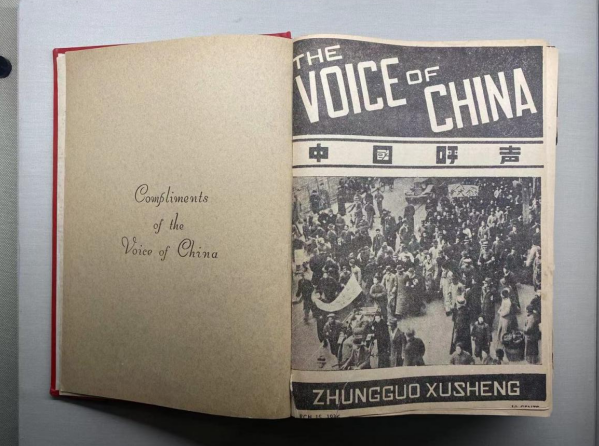 Compliments
of the
Voice of China
THE
VOICE OF
CHINA
中国呼声
ZHUNGGUO XUSHENG